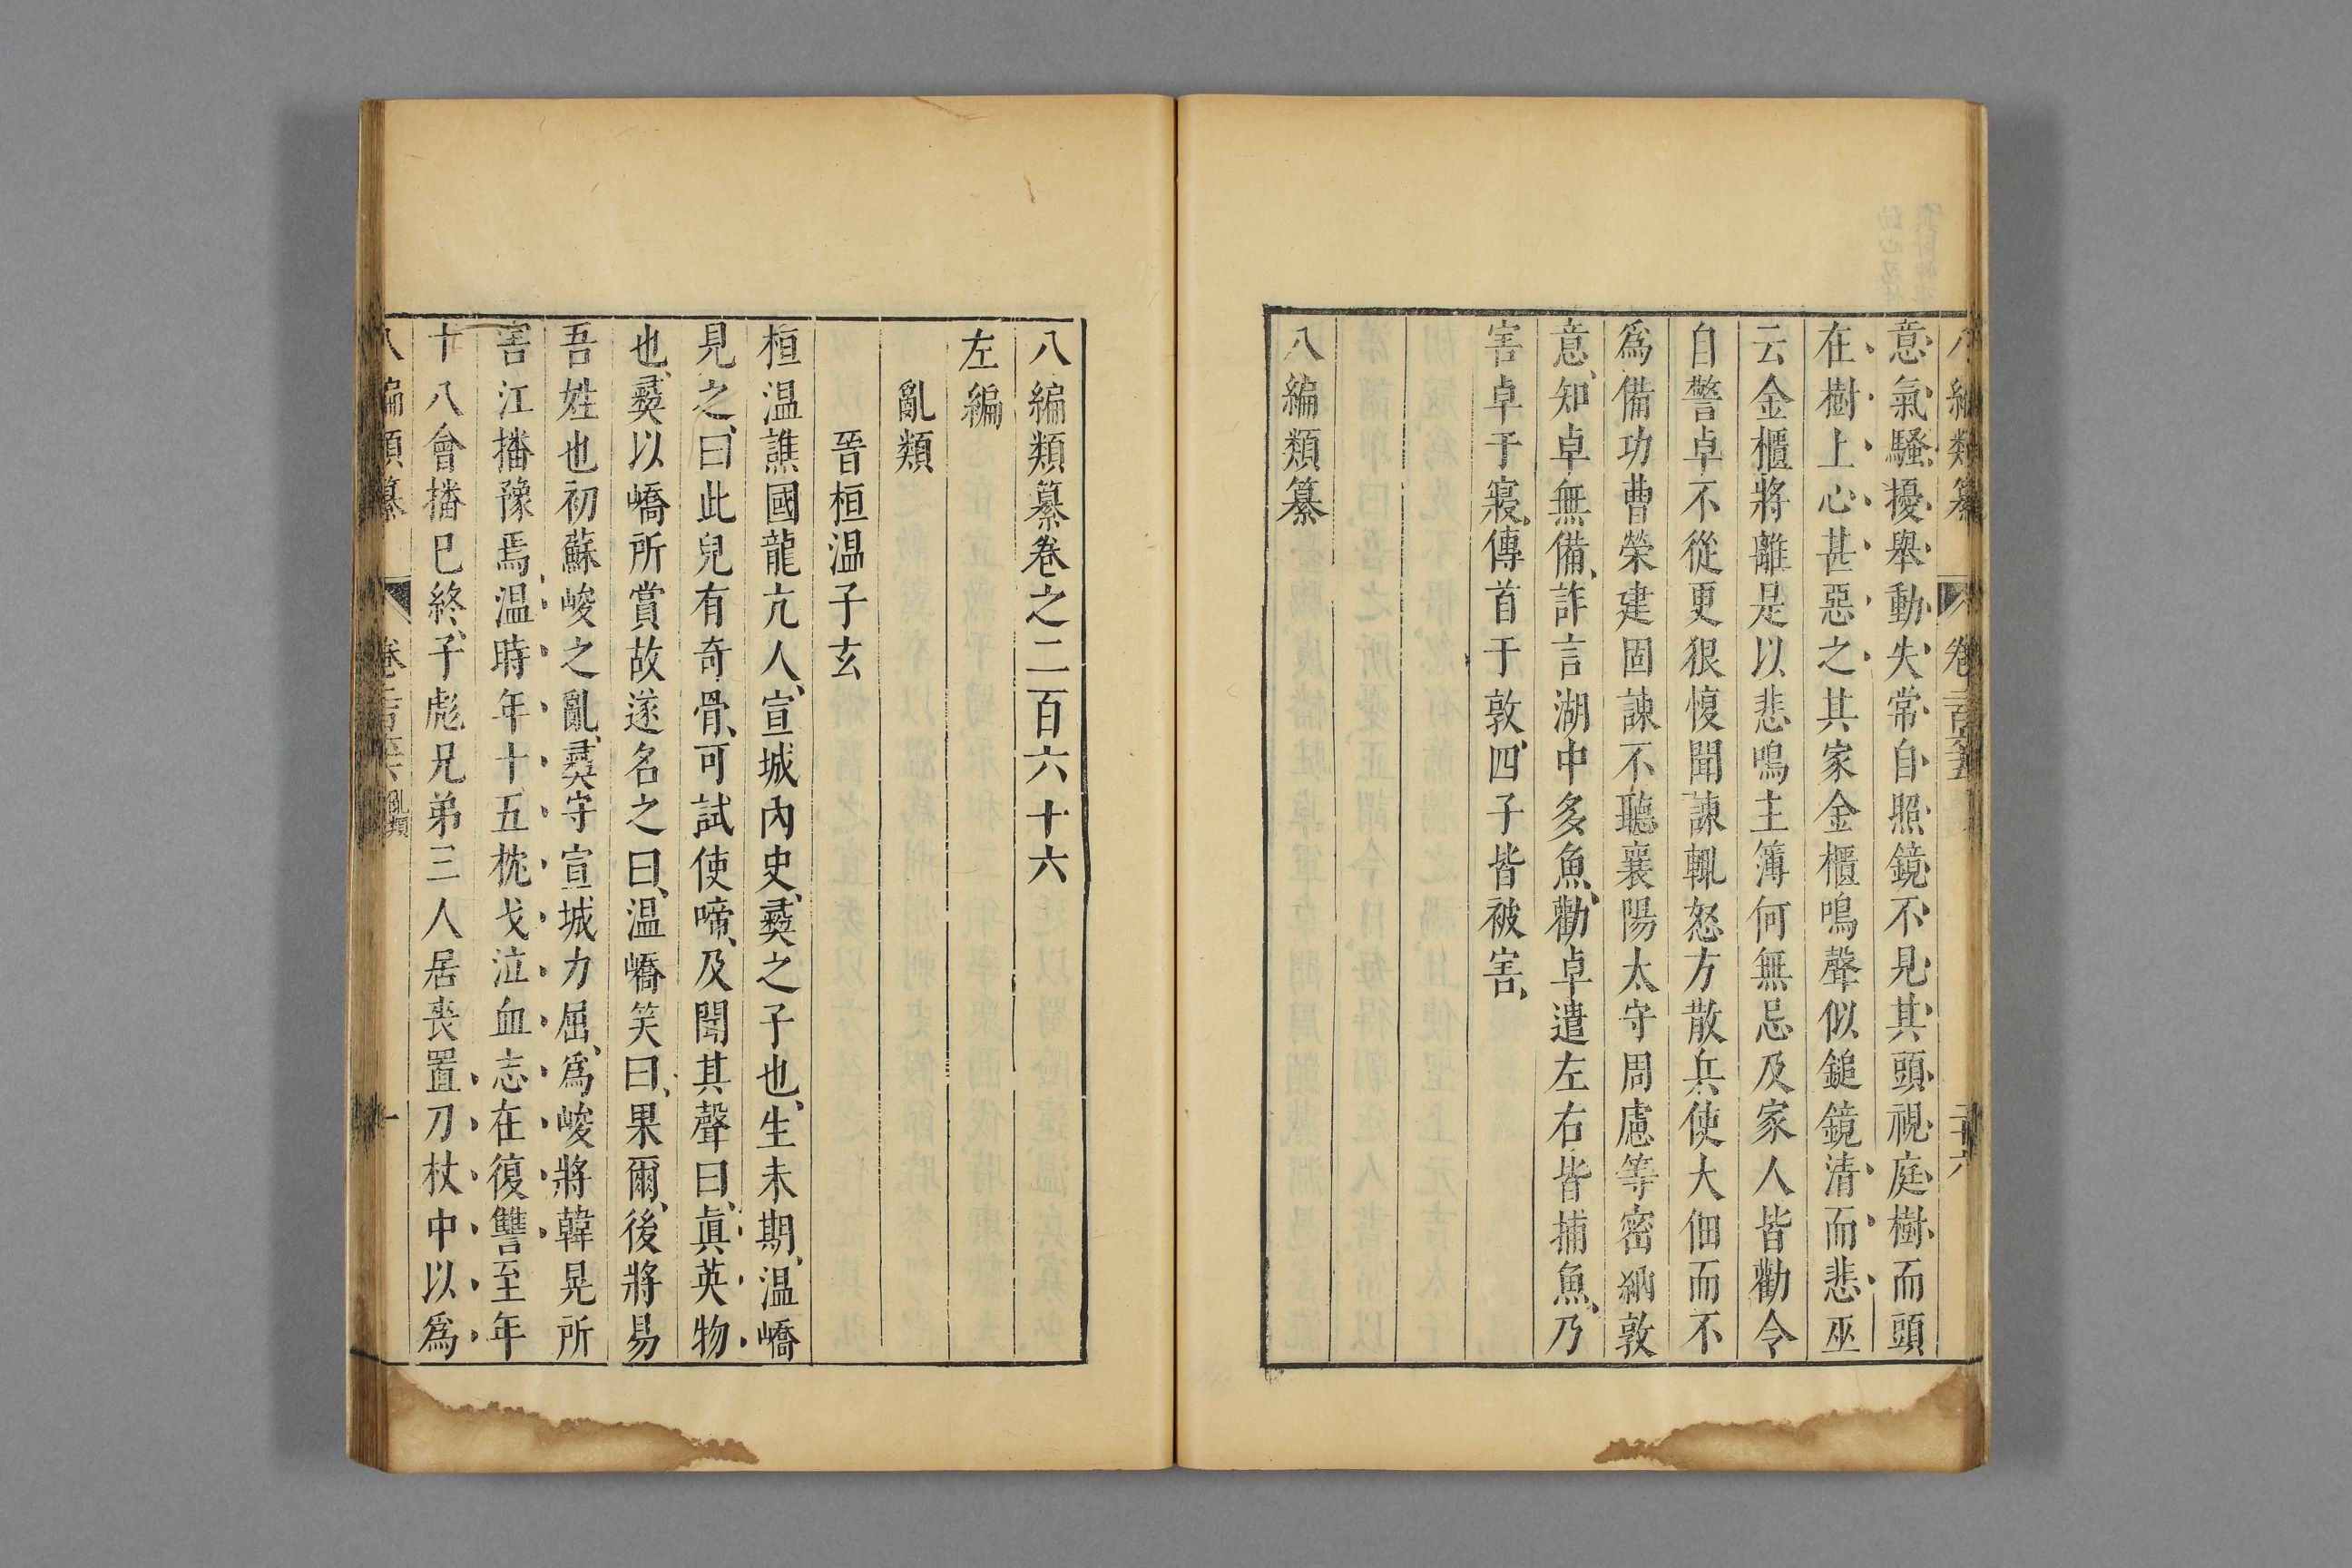 八編類纂 卷二百六十五 二十六
意氣騷擾舉動失常自照鏡不見其頭視庭樹而頭
在樹上心甚惡之其家金櫃鳴聲似鎚鏡清而悲巫
云金櫃將離是以悲鳴主簿何無忌及家人皆勸令
自警卓不從更狠愎聞諫輒怒方散兵使大佃而不
爲備功曹榮建固諫不聽襄陽太守周慮等密納敦
意、知卓無備、詐言湖中多魚、勸卓遣左右皆捕魚、乃
害卓于寢、傳首于敦、四子皆被害、
八編類纂
八編類纂卷之二百六十六
左編
亂類
晉桓温子玄
桓温譙國龍亢人、宣城內史、彝之子也、生未期、温嶠
見之、曰此兒有奇骨、可試使啼、及聞其聲曰、眞英物
也、彝以嶠所賞故遂名之曰、温嶠笑曰、果爾、後將易
吾姓也初蘇峻之亂、彝守宣城力屈、爲峻將韓晃所
害江播豫焉温時年十五枕戈泣血志在復讐至年
十八會播已終、子彪兄弟三人居喪置刀杖中以爲
八編類纂 卷二百六十六 亂類 一